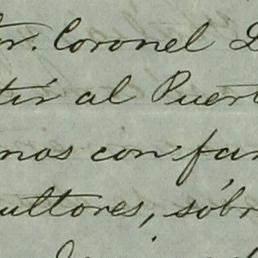 Sr. Coronel D
tir al Puert
mos con fam
ultores, sobr